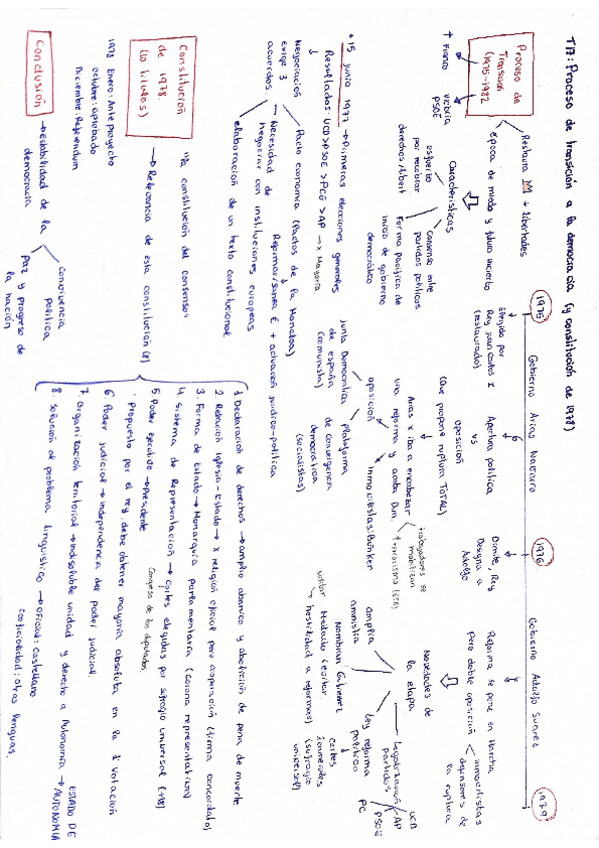 T17: Proceso de transición a la democracia (y constitución de 1978)
Proceso de
Transición
(1975-1982
Restaura M + libertades
época de miedo y futuro incierto
↑ Franco
victoria
PSOE
Características
esfuerzo
por
derechos/libert
Consenso entre
partidos políticos
Forma pacífica de
inicio de gobierno
democrático
1975
Gobierno Arias Navarro
1976
Gobierno Adolfo Suarez
1979
Elegido por
Rey Juan Carlos I
(restaurados)
Apertura política
vs
oposición
(Que propone ruptura TOTAL)
Arias x iba a encabezar
una reforma y acaba Dim.
oposición
Inmovilistas: Búnker
Junta Democrática
de España
(comunista)
Plataforma
de convergencia
democrática
(socialistas)
Dimite, Rey
Designa a
Adolfo
trabajadores se
movilizan
↑ terrorismo (ETA)
Reforma se pone en marcha
pero doble oposición
inmovilistas
defensores de
la ruptura
Novedades de
la etapa
Amplia
amnistía
Legalización
partidos
UCD
AP
PSOE
PC
Ley reforma
política
Nombran Gutierrez
Mellado (evitar
hostilidad a reformas)
militar
cortes
bicamerales
(sufragio
universal)
* 15 junio 1977 → Primeras elecciones generales
Resultados: UCD > PSOE > PCE > AP → x Mayoría
Negociación
exige 3
acuerdos
Pacto economía (Pactos de la Moncloa)
Reformar/sanea E + actuación jurídico-política
Necesidad de
negociar con instituciones europeas
elaboración de un texto constitucional
Constitución
de 1978
"la constitución del consenso"
→ Relevancia de esta constitución
1978 Enero: Anteproyecto
octubre: aprobado
Diciembre: Referéndum
1. Declaración de derechos → amplio abanico y abolición de pena de muerte
2. Relación Iglesia-Estado → x religión oficial pero cooperación (firma concordato)
3. Forma de Estado → Monarquía parlamentaria (corona representativa)
4. Sistema de Representación → cortes elegidas por sufragio universal (+18)
Congreso de los diputados
5 Poder ejecutivo → Presidente
· Propuesto por el rey, debe obtener mayoría absoluta en la 1ª votación
6. Poder judicial → independencia del poder judicial.
7. Organización territorial → indisoluble unidad y derecho a Autonomía → ESTADO DE
AUTONOMIA
8. Solución de problema lingüístico → Oficial: Castellano
cooficialidad: otras lenguas.
Conclusión
→ Estabilidad de la
democracia
Convivencia
política
Paz y progreso de
la nación